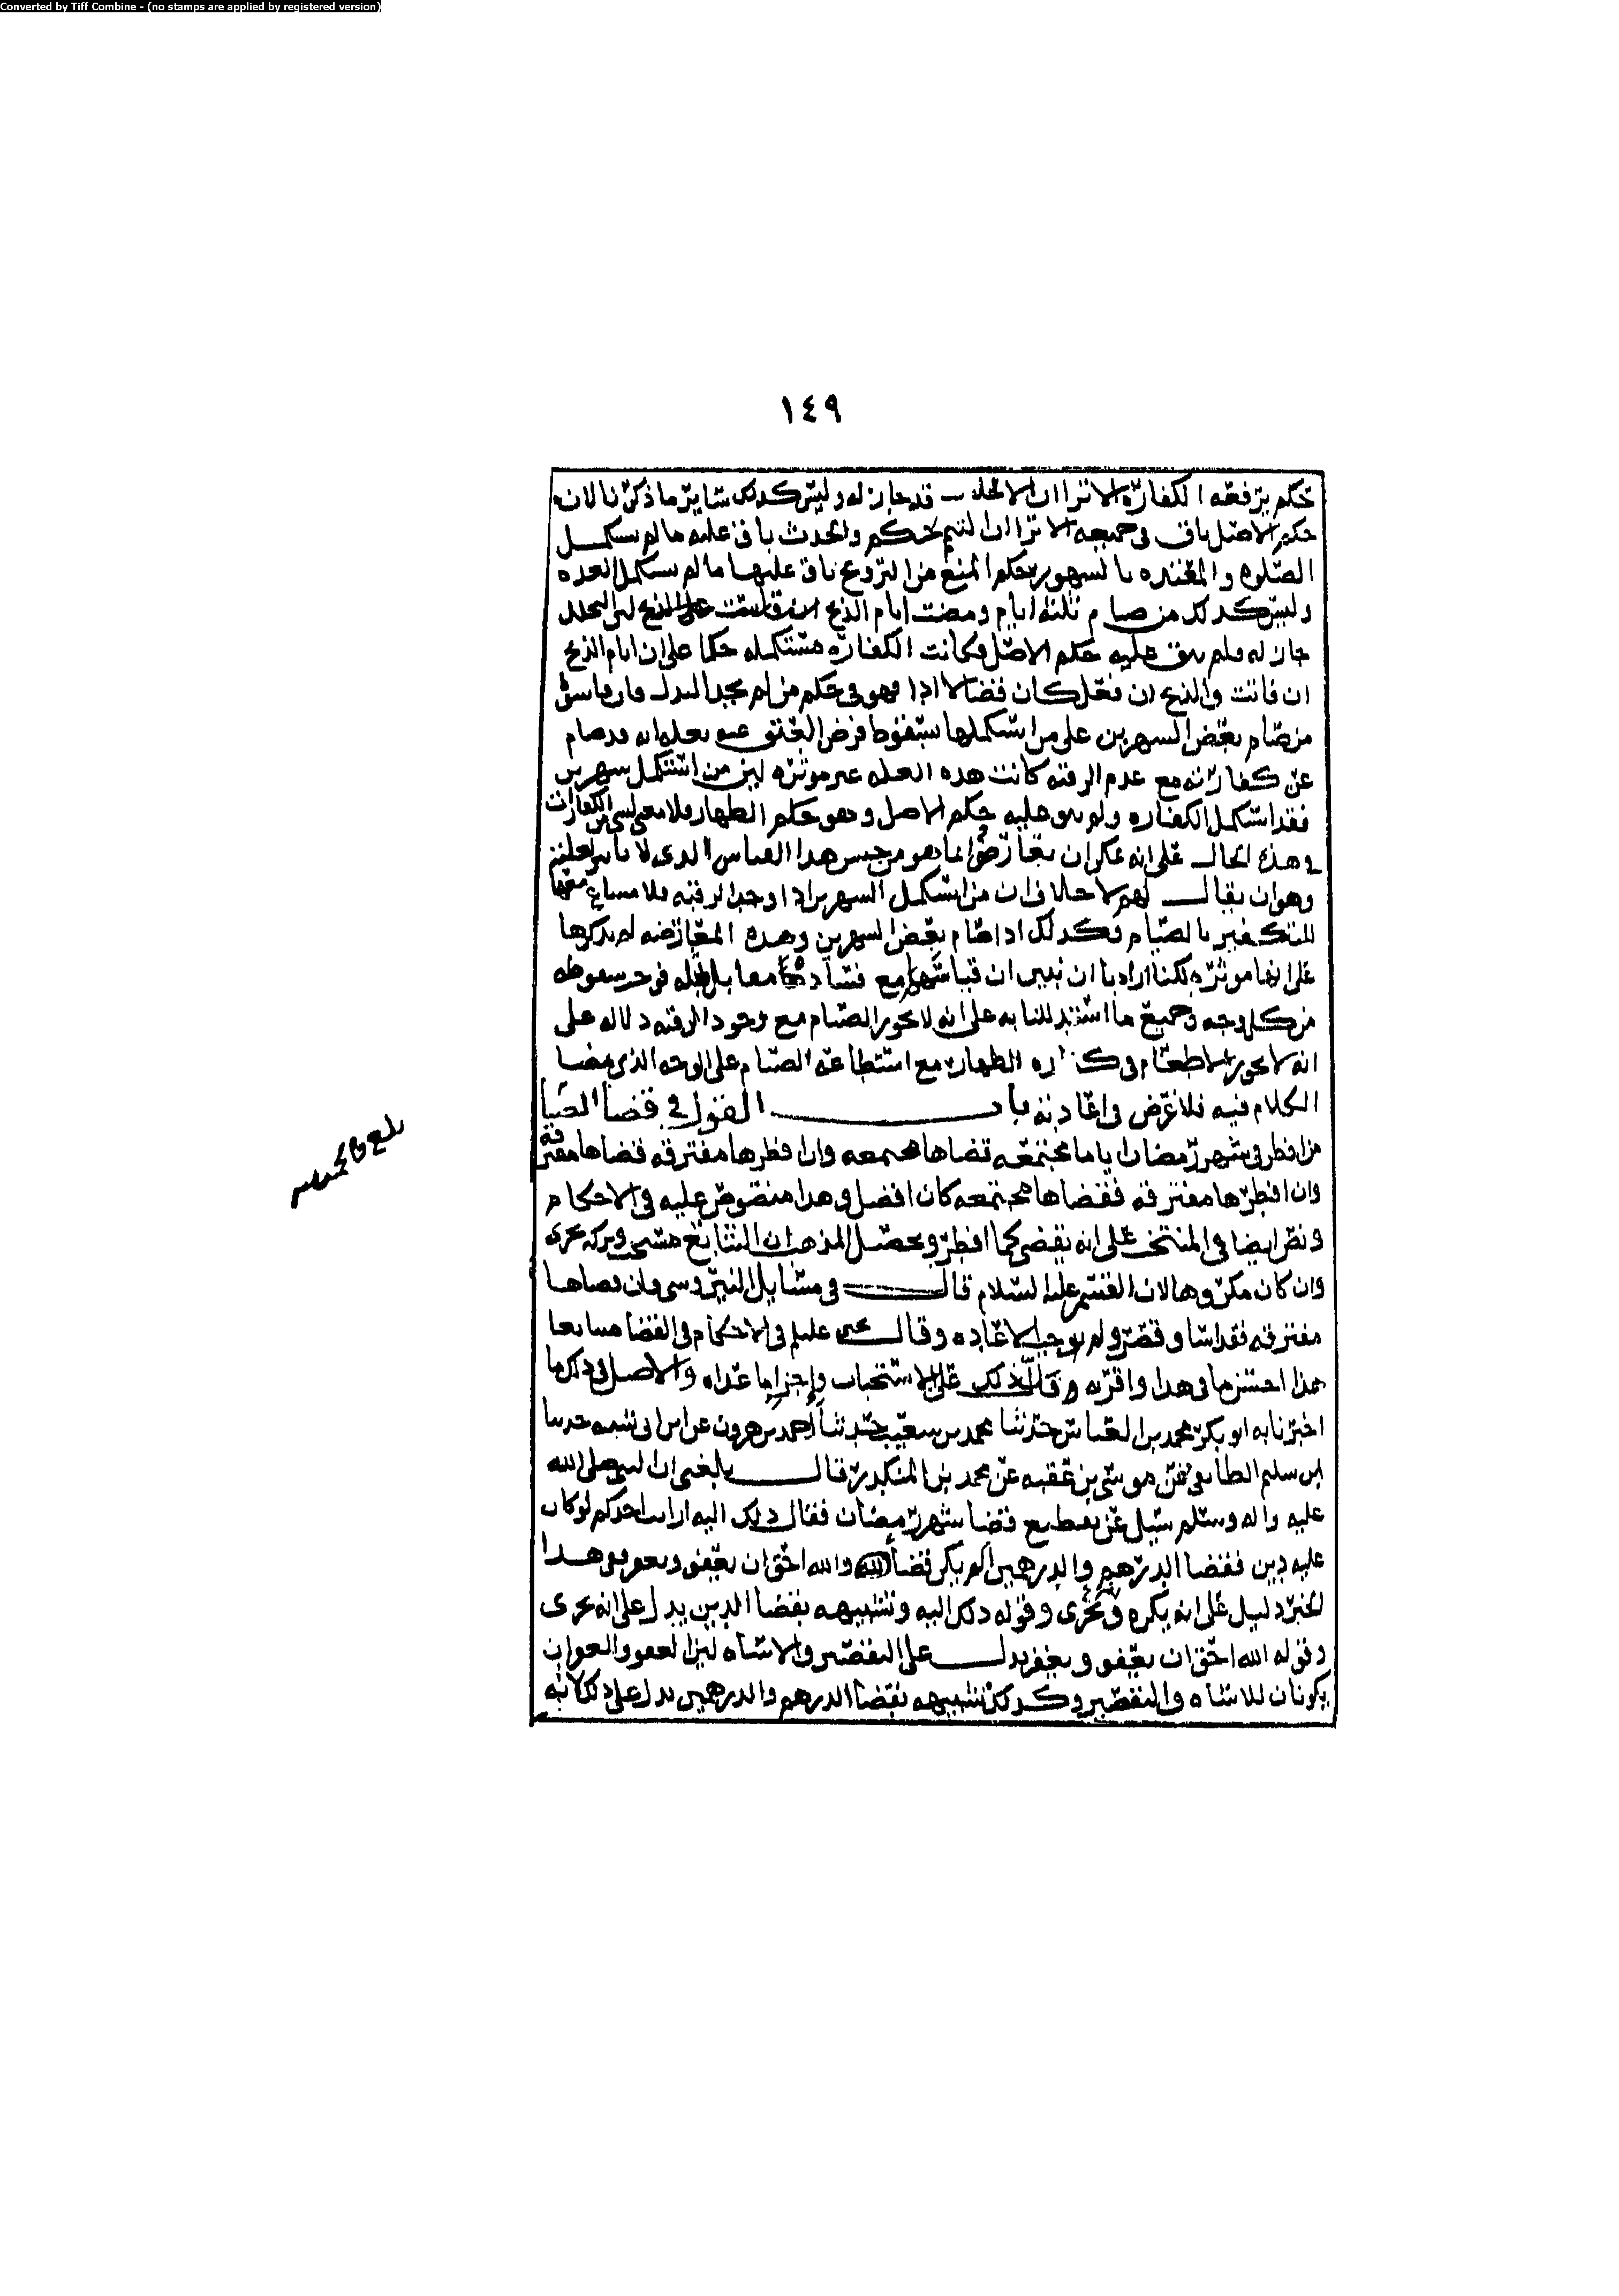 Converted by Tiff Combine - (no stamps are applied by registered version)
١٤٩
حكم يرفعه الكفارة الا ترا ان الاحلال قد جاز له وليس كذلك سائر ما ذكرنا لان
حكم الاصل باق في جميعه الا ترا ان المتيمم حكم والحدث باق عليه ما لم يستكمل
الصلوه والمعتده بالشهور حكم المنع من التزويج باق عليها ما لم يستكمل العده
وليس كذلك من صام ثلثه ايام ومضت ايام الذبح
جاز له ولم يبق عليه حكم الاصل وكانت الكفاره مستكمله حكما على ان ايام الذبح
ان فاتت والذبح ان فعل كان قضا لا ادا فهو في حكم من لم يجد البدل فان قاسوا
من صام بعض الشهرين على من استكملها بسقوط فرض العتق عنه بعله انه قد صام
عن كفارته مع عدم الرقبه كانت هذه العله غير موثره لان من استكمل شهرين
فقد استكمل الكفاره ولم يبق عليه حكم الاصل وهو حكم الظهار ولا معنى لشي من الكفارات
في هذه الحال على انه يمكن ان يعارضوا بما هو من جنس هذا القياس الذي لا تاثير لعلته
وهو ان يقال لهم لا خلاف ان من استكمل الشهرين اذا وجد الرقبه فلا مساغ معها
للتكفير بالصيام وكذلك اذا صام بعض الشهرين وهذه المعارضه لم نذكرها
على انها موثره لكنا اردنا ان نبين ان قياسهم مع فساده مقابل بمثله فوجب سقوطه
من كل وجه وجميع ما استدللنا به على انه لا يجوز الصيام مع وجود الرقبه دلاله على
انه لا يجوز الاطعام في كفاره الظهار مع استطاعه الصيام على الوجه الذي مضا
الكلام فيه فلا غرض في اعادته باب القول في قضا الصيام
من افطر في شهر رمضان اياما مجتمعه قضاها مجتمعه وان افطرها مفترقه قضاها مفترقه
وان افطرها مفترقه فقضاها مجتمعه كان افضل وهذا منصوص عليه في الاحكام
ونص ايضا في المنتخب على انه يقضي كما افطر وتحصيل المذهب ان التتابع مستحب وتركه يجزي
وان كان مكروها لان القسم عليه السلام قال في مسائل النيروسي وان قضاها
مفترقه فقد اسا وقصر ولم يوجب الاعاده وقال يحيى عليلم في الاحكام في القضا متتابعا
هذا احسن ما في هذا واقربه وقال ذلك على الاستحباب واجزاها عداه والاصل في ذلك ما
اخبرنا به ابو بكر محمد بن العباس حدثنا محمد بن شعيب حدثنا احمد بن هرون عن ابن ابي شيبه حدثنا
ابن سليم الطايفي عن موسى بن عقبه عن محمد بن المنكدر قال بلغني ان النبي صلى الله
عليه واله وسلم سيل عن تقطيع قضا شهر رمضان فقال ذلك اليه ارايت احدكم لو كان
عليه دين فقضا الدرهم والدرهمين الم يكن قضا والله احق ان يعفو ويغفر وفي هذا
الخبر دليل على انه يكره ويجزي وقوله ذلك اليه وتشبيهه بقضا الدين يدل على انه يجزي
وقوله الله احق ان يعفو ويغفر يدل على التقصير والاساه لان العفو والغفران
يكونان للاساه والتقصير وكذلك تشبيهه بقضا الدرهم والدرهمين يدل على ذلك لانه